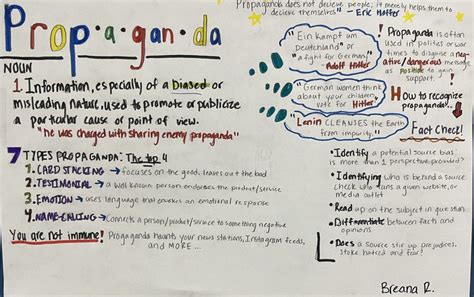 Propaganda does not decieve people; it merely helps them to
decieve themselves" - Eric Hoffer
Prop·a·gan·da
NOUN
1. Information, especially of a biased or
misleading nature, used to promote or publicize
a particular cause or point of view.
"he was charged with sharing enemy propaganda"
7 TYPES PROPAGANDA: The top 4
1. CARD STACKING → focuses on the good, leaves out the bad
2. TESTIMONIAL → a well known person endorses the product/service
3. EMOTION → uses language that envokes an emotional response
4. NAME-CALLING → Connects a person/product/service to something negative
You are not immune! Propaganda haunts your news stations, Instagram feeds,
and MORE...
"Ein Kampf um
Deutchland" or
"a fight for Germany"
Adolf Hitler
"German women think
about your children,
vote for Hitler"
Lenin CLEANSES the Earth
from impurity."
! Propaganda is often
used in politics or war
times to disguise a neg-
ative/dangerous message
as positive to gain
support. !
How to recognize
propaganda?..
Fact Check!
• Identify a potential source bias
is more than 1 perspective provided?
• Identifying who is behind a source
check who runs a given website, or
media outlet
• Read up on the subject in question
• Differentiate between facts and
opinions
• Does a source stir up prejudices,
stoke hatred or fear?
Breana R.